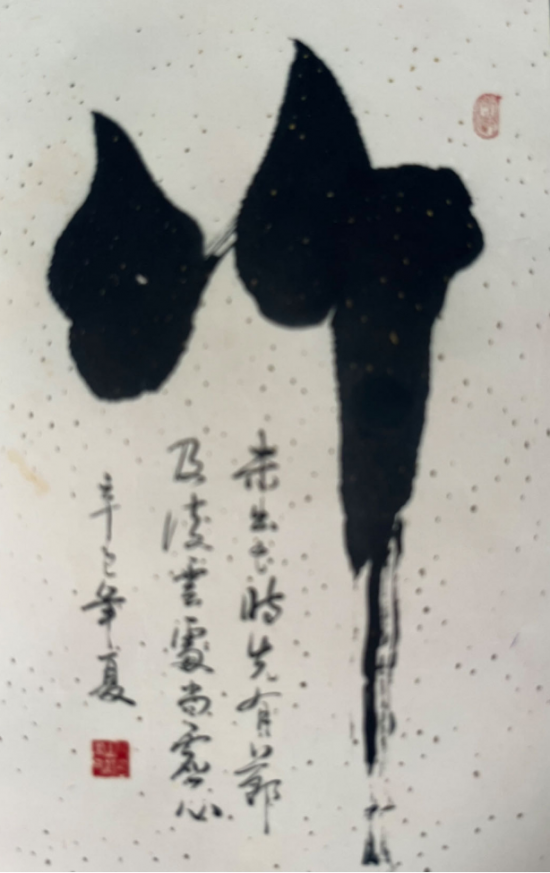 竹
未出土時先有節
及凌雲處尚虛心
辛巳年夏